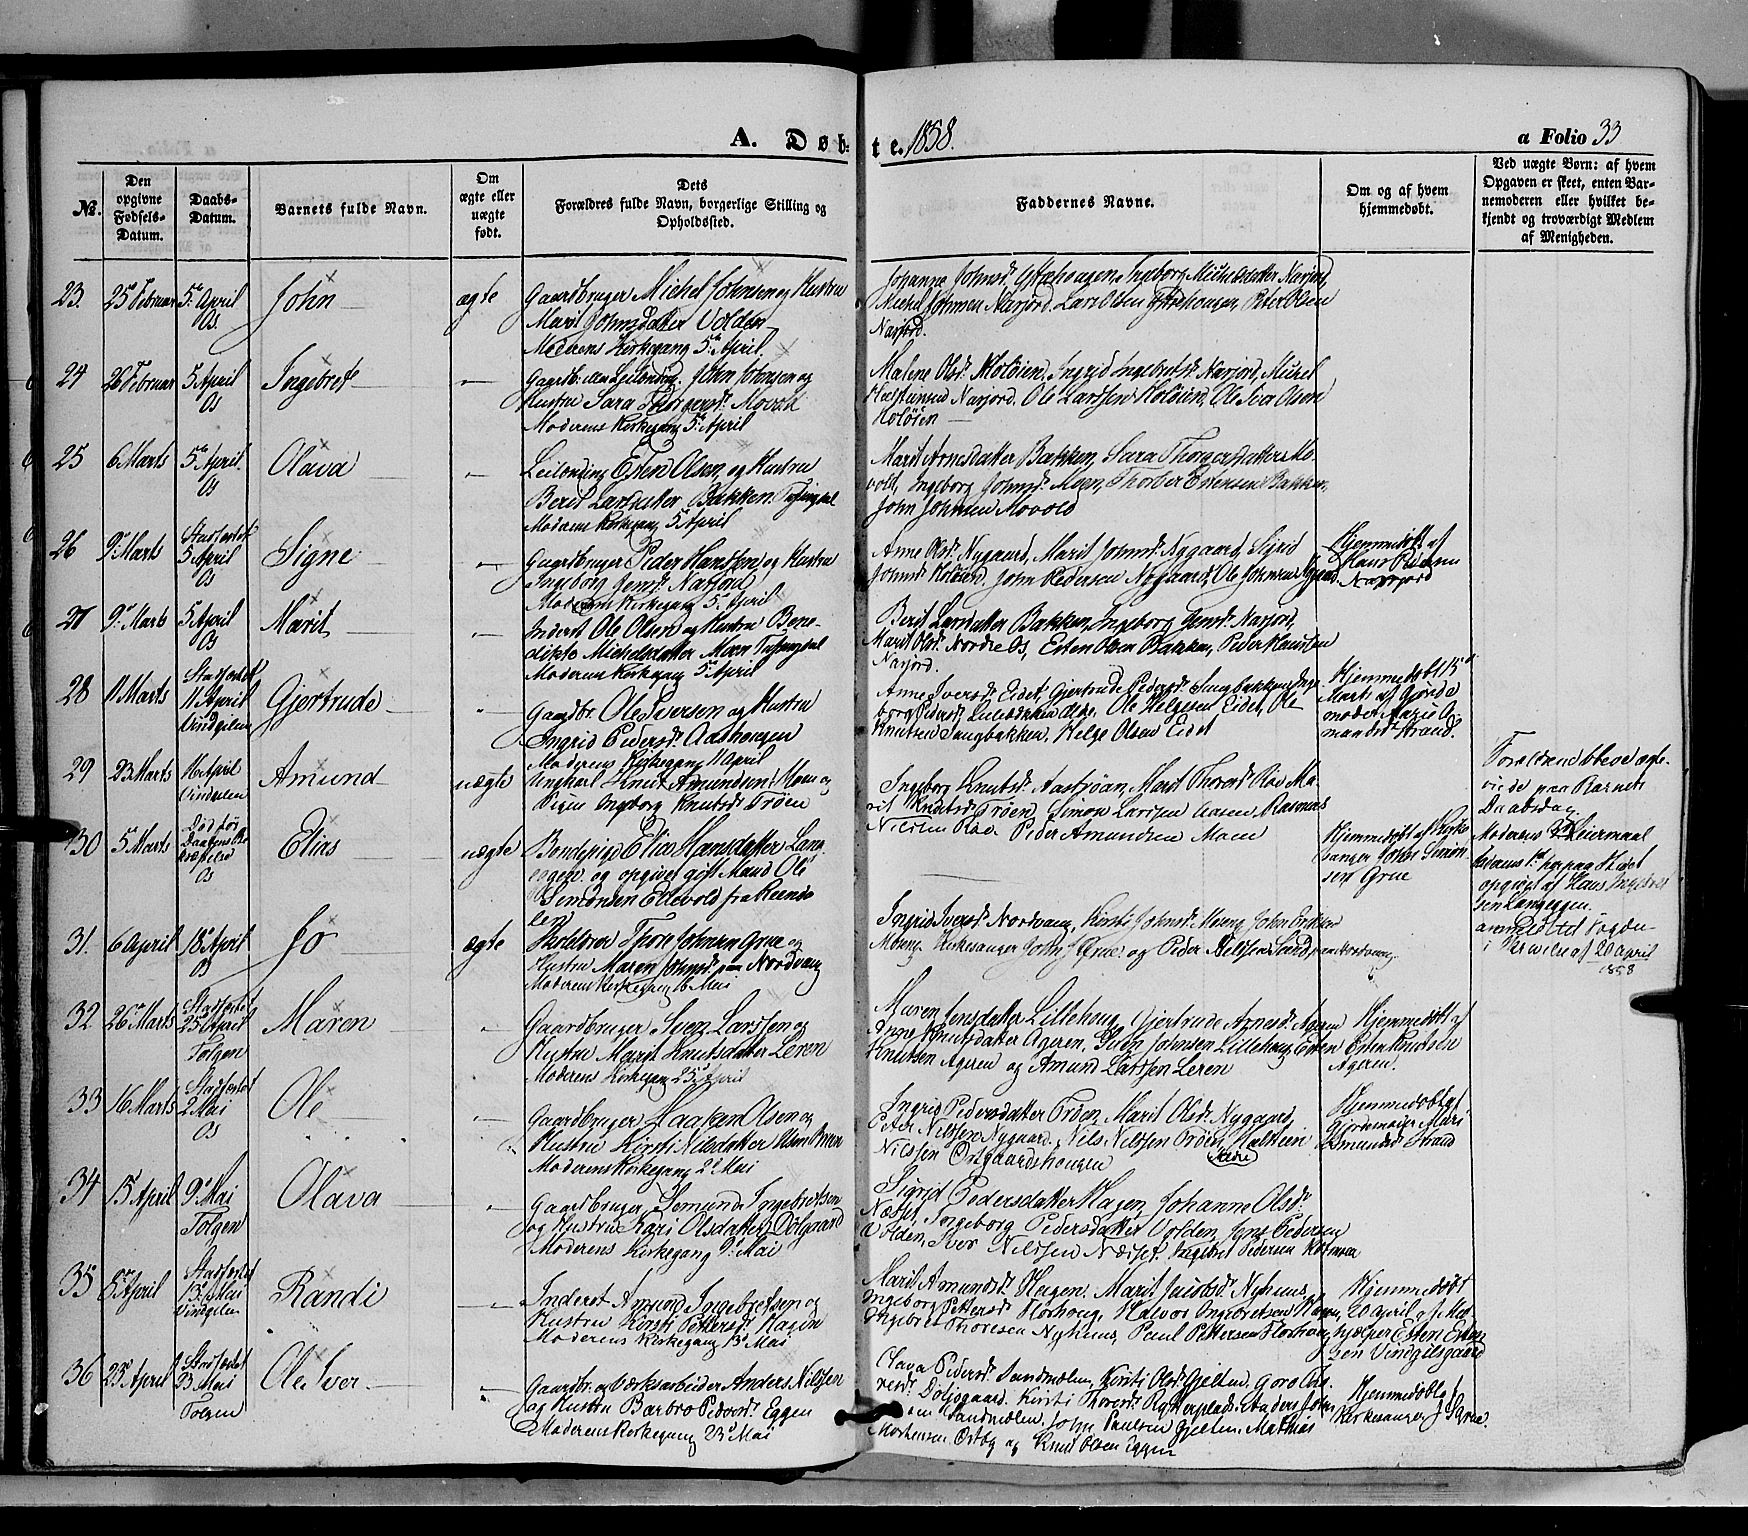 A. Døbte. 1858.
a Folio 33
№.
Den opgivne Fødsels-Datum.
Daabs-Datum.
Barnets fulde Navn.
Om ægte eller uægte født.
Dets Forældres fulde Navn, borgerlige Stilling og Opholdssted.
Faddernes Navne.
Om og af hvem hjemmedøbt.
Ved uægte Børn: af hvem Opgaven er skeet, enten Barnemoderen eller hvilket bekjendt og troværdigt Medlem af Menigheden.
23. 25 Februar 5 April Os. John ægte
Gaardbruger Michel Johnsen og Hustru
Marit Johnsdatter Volden
Moderens Kirkegang 5 April.
Johanne Johnsd. Ingeborg Michelsdatter Narjord,
Michel Johnsen Narjord, Lars Olsen, Peter Olsen
Narjord.
24 26 Februar 5 April Os Ingebret
John Johnsen og
Hustru Sara Thorgersd. Movold
Moderens Kirkegang 5 April
Malene Olsd. Holøien, Ingrid Ingebretsd. Narjord, Michel
Narjord. Ole Larssen Holøien, Ole Iver Olsen
Holøien
25 6 Marts 5 April Os Olava
Leilænding Esten Olsen og Hustru
Berit Larsdatter Bakken
Moderens Kirkegang 5 April
Marit Arnesdatter Bakken, Sara Thorgersdatter Mo-
vold, Ingeborg Johnsd. Moen, Estensen Bakken,
John Johnsen Movold
26 9 Marts Stadfestet 5 April Os Signe
Gaardbruger Peder Hansen og Hustru
Ingeborg Jensd. Narjord
Moderens Kirkegang 5 April
Anne Olsd. Nygaard, Marit Johnsd. Nygaard, Sigrid
Johnsd. Holøien, John Pedersen Nygaard, Ole Johnsen Nygaard
Hjemmedøbt af
Hans Pedersen
Narjord
27 9 Marts 5 April Os Marit
Inderst Ole Olsen og Hustru Bene-
dikte Michelsdatter Moen
Moderens Kirkegang 5 April
Berit Larsdatter Bakken, Ingeborg Jensd. Narjord,
Marit Olsd. Nordre Os, Esten Olsen Bakken, Peder Hansen
Narjord.
28 11 Marts Stadfestet 11 April Vindgelen Gjertrude
Gaardbr. Ole Iversen og Hustru
Ingrid Pedersd. Aashaugen
Moderens Kirkegang 11 April
Anne Iversd. Eidet, Gjertrude Pedersd. Inge-
borg Pedersd. Ole Helgesen Eidet, Ole
Knutsen Helge Olsen Eidet
Hjemmedøbt 15
Marts af Gjorde
moder Marie A-
mundsd. Strand.
29 23 Marts 16 April Vindgelen Amund uægte
Ungkarl Knut Amundsen Moen og
Pigen Ingeborg Knutsd. Trøen
Ingeborg Knutsd. Aastrøan, Marit Ma-
rit Knutsd. Trøen, Simon Larssen Aasen, Rasmus
Nilssen Peder Amundsen Moen
Forældrene bleve ægte-
viede paa Barnets
Daabsdag
30 5 Marts Død før Daabens Os Elias uægte
Bondepige Elise Hansdatter Lang-
eggen og opgivet gift Mand Ole
Simonsen Ellevold fra
Hjemmedøbt af Kirke-
sanger John Simon-
sen Grue
Moderens Leiermaal
opgivet af Hans Ingebret-
sen Langeggen.
anmeldt
20 April
1858
31. 6 April 18 April Os Jo ægte
Thore Johnsen Grue og
Hustru Maren Johnsd. Nordvang
Moderens Kirkegang 16 Mai
Ingrid Iversd. Nordvang, Kirsti Johnsd. Moseng, John
Moseng Kirkesanger John S. Grue og Peder Nilssen
32 26 Marts Stadfestet 25 April Tolgen Maren
Gaardbruger Svend Larssen og
Hustru Marit Knutsdatter Leren
Moderens Kirkegang 25 April
Maren Jensdatter Lillehoug, Gjertrude Arnesd. Ageren
Anne Knutsdatter Ageren, Svend Johnsen Lillehoug, Esten
Knutsen Ageren og Amund Larssen Leren
Hjemmedøbt af
Esten Knutsen
Ageren.
33 16 Marts Stadfestet 2 Mai Os Ole
Gaardbruger Haaken Olsen og
Hustru Kirsti Nilsdatter
Moderens Kirkegang 2 Mai
Ingrid Pedersdatter Trøen, Marit Olsd. Nygaard,
Peter Nilssen Nygaard, Nils Nilssen Trøen, Halstein
Nilssen
Hjemmedøbt af
Gjordemoder Mari
Amundsd. Strand
34 15 April 9 Mai Tolgen Olava
Gaardbruger Semund Ingebretsen
og Hustru Kari Olsdatter Dølgaard
Moderens Kirkegang 9 Mai
Sigrid Pedersdatter Hagen, Johanne Olsd.
Næsset, Ingeborg Pedersdatter Volden, Jens Pedersen
Volden, Iver Nilssen Næsset, Ingebret Pedersen
35 8 April Stadfestet 13 Mai Vindgelen Randi
Inderst Amund Ingebretsen og
Hustru Kirsti Pettersd. Hagen
Moderens Kirkegang 13 Mai
Marit Amundsd. Hagen, Marit Jacobsd. Nyhuus,
Ingeborg Pettersd. Florhoug, Halvor Ingebretsen Hagen,
Ingebret Thoresen Nyhuus, Paul Pettersen Florhoug
Hjemmedøbt
20 April af Med-
hjælper Esten Esten-
sen Vindgelsgaard
36 23 April Stadfestet 23 Mai Tolgen Ole Iver
Gaardbr. og Værksarbeider Anders Nilssen
og Hustru Barbro Pedersd. Eggen
Moderens Kirkegang 23 Mai
Olava Pedersd. Sandmælen, Kirsti Olsd. Gjelten, Goro
Dølgaard, Kirsti Thoresd. Anders John-
Sandmælen, John Paulsen Gjelten, Mathias
Mortensen Østby og Knut Olsen Eggen
Hjemmedøbt af
Kirkesanger J. Grue.